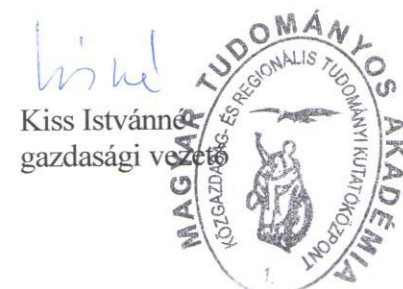 Kiss Istvánné
gazdasági vezető
MAGYAR TUDOMÁNYOS AKADÉMIA
KÖZGAZDASÁG- ÉS REGIONÁLIS TUDOMÁNYI KUTATÓKÖZPONT
1.